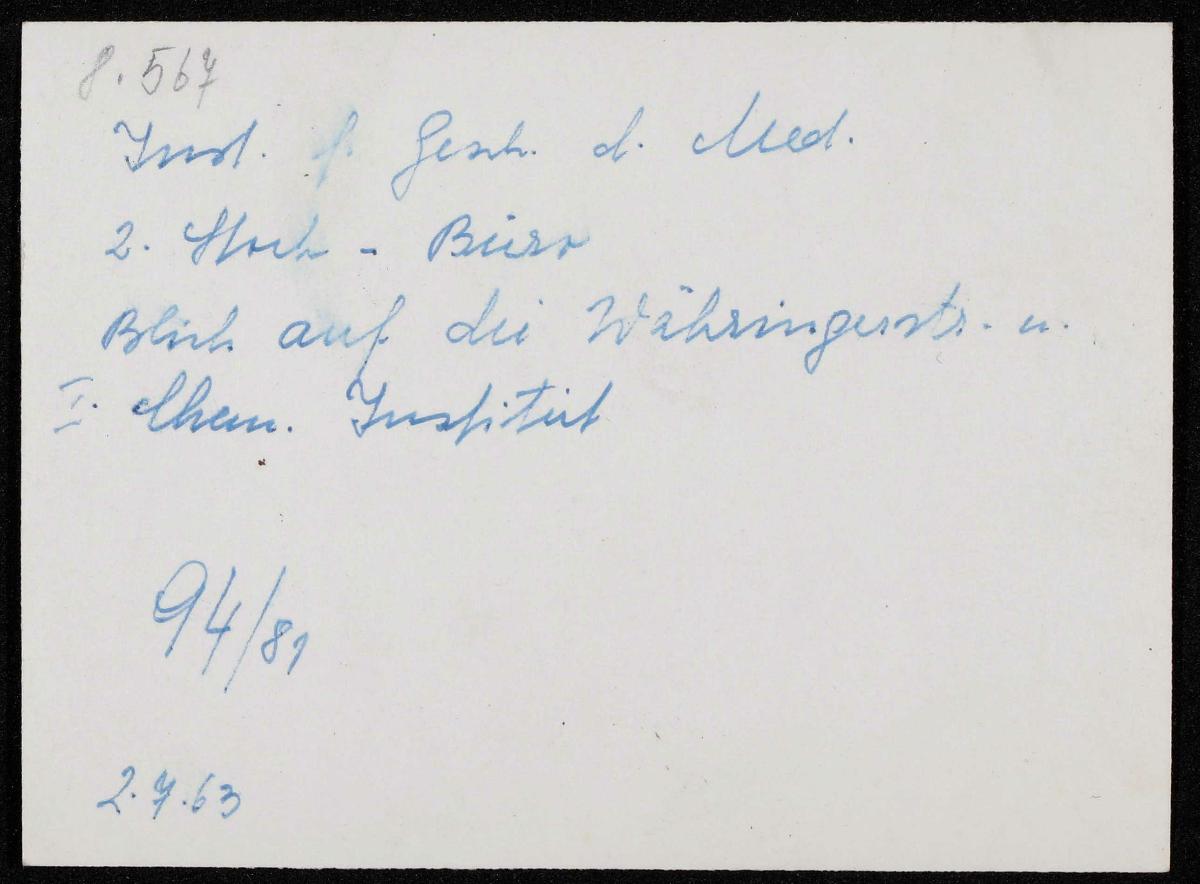 8.567
Inst. f. Gesch. d. Med.
2. Stock - Büro
Blick auf die Währingerstr. u.
I. Chem. Institut
94/81
2.7.63